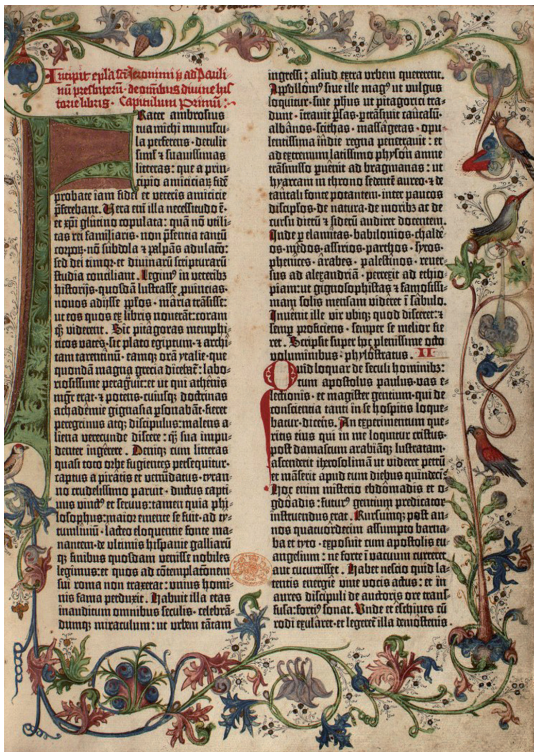 Incipit ep̄la sc̄i Jeronimi ad Pauli
nū presbiterū: de omnibus diuine his
torie libris. Capitulum primum:·
Frater ambrosius
tua michi munuscu-
la perferens. detulit
simul et suauissimas
litteras: que a prin-
cipio amiciciaꝝ fidē
probate iam fidei et veteris amicicie
p̄ferebant. Uera em̄ illa necessitudo ē.
et xp̄i glutino copulata: quam nō utili-
tas rei familiaris. non p̄sentia tantū
corporū. nō subdola et palpans adulatō:
sed dei timor. et diuinaꝝ scripturarū
studia conciliant. Legim⁹ in veteribꝫ
historijs. quosdā lustrasse. ꝓuincias.
nouos adijsse pp̄los. maria trāsisse:
ut eos quos ex libris nouerāt: coram
qꝫ viderēt. Sic pitagoras memphi-
ticos vates. sic plato egiptum. et archi-
tam tarentinū. eamqꝫ orā ytalie. que
quondā magna grecia dicebat̄: labo-
riosissime peragrauit: et ut qui athenis
mgr̄ erat. et potens. cuiusqꝫ doctrinas
achademie gignasia ꝑsonabāt. fieret
peregrinus atqꝫ discipulus: malens a-
liena verecunde discere: qꝫ̄ sua impu-
denter ingerere. Deniqꝫ cum litteras
quasi toto orbe fugientes persequitur.
captus a piratis et venūdatus. tyran-
no crudelissimo paruit. ductus capti-
uus vinct⁹ et seruus: tamen quia phi-
losophus: maior emente se fuit. ad ty-
tumliuiū. lacteo eloquentie fonte ma-
nantem. de vltimis hispanie galliarūqꝫ
finibus. quosdam venisse nobiles
legimus: et quos ad cōtemplacōnem
sui roma non traxerat: vnius homi-
nis fama perduxit. Habuit illa etas
inauditum omnibus seculis. celebrā-
dumqꝫ miraculum: ut urbem tātam
ingressi: aliud extra urbem quererent.
Apollonius siue ille mag⁹ ut vulgus
loquitur. siue ph̄us ut pitagorici tra-
dunt. intrauit ꝑsas. ꝑtrāsiuit caucasū.
albanos. scithas. massagetas. opu-
lentissima indie regna penetrauit: et
ad extremum latissimo physon amne
trāsmisso ꝑuenit ad bragmanas: ut
hyarcam in throno sedentē aureo. et de
tantali fonte potantem. inter paucos
discipulos. de natura. de moribꝫ ac de
cursu dierū et siderū audiret docentem.
Inde ꝑ elamitas. babilonios. chalde-
os. medos. assirios. parthos. syros.
phenices. arabes. palestinos. reuer-
sus ad alexandriā. perrexit ad ethio-
piam: ut gignosophistas et famosissi-
mam solis mensam videret ī sabulo.
Inuenit ille vir vbiqꝫ quod disceret: et
semꝑ proficiens. semper se melior fie-
ret. Scripsit super hoc plenissime octo
voluminibus. phylostratus. II
Quid loquar de seculi hominibꝫ:
cum apostolus paulus. vas e-
lectionis. et magister gentium. qui de
consciencia tanti in se hospitis loque-
batur. dicens. An experimentum que-
ritis eius qui in me loquitur cristus.
post damascum arabiāqꝫ lustratam:
ascenderit iherosolimā ut videret petrū
et māserit apud eum diebus quindeci.
Hoc enim misterio ebdōmadis et o-
gdoadis: futur⁹ gentium predicator
instruendus erat. Rursumqꝫ post an-
nos quatuordecim assumpto barna-
ba et tyto. exposuit cum apostolis eu-
angelium: ne forte ī vacuum curreret
aut cucurrisset. Habet nescio quid la-
tentis energie viue vocis actus: et in
aures discipuli de auctoris ore trans-
fusa: forti⁹ sonat. Unde et eschines cū
rodi exularet. et legeret̄ illa demostenis